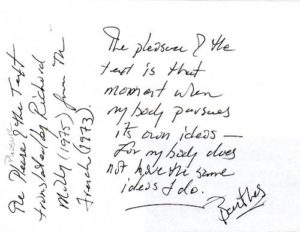 The pleasure of the
text is that
moment when
my body pursues
its own ideas —
for my body does
not have the same
ideas I do.
Barthes
Pleasure
The Please of the Text
translated by Richard
Milly (1975) from The
French (1973).